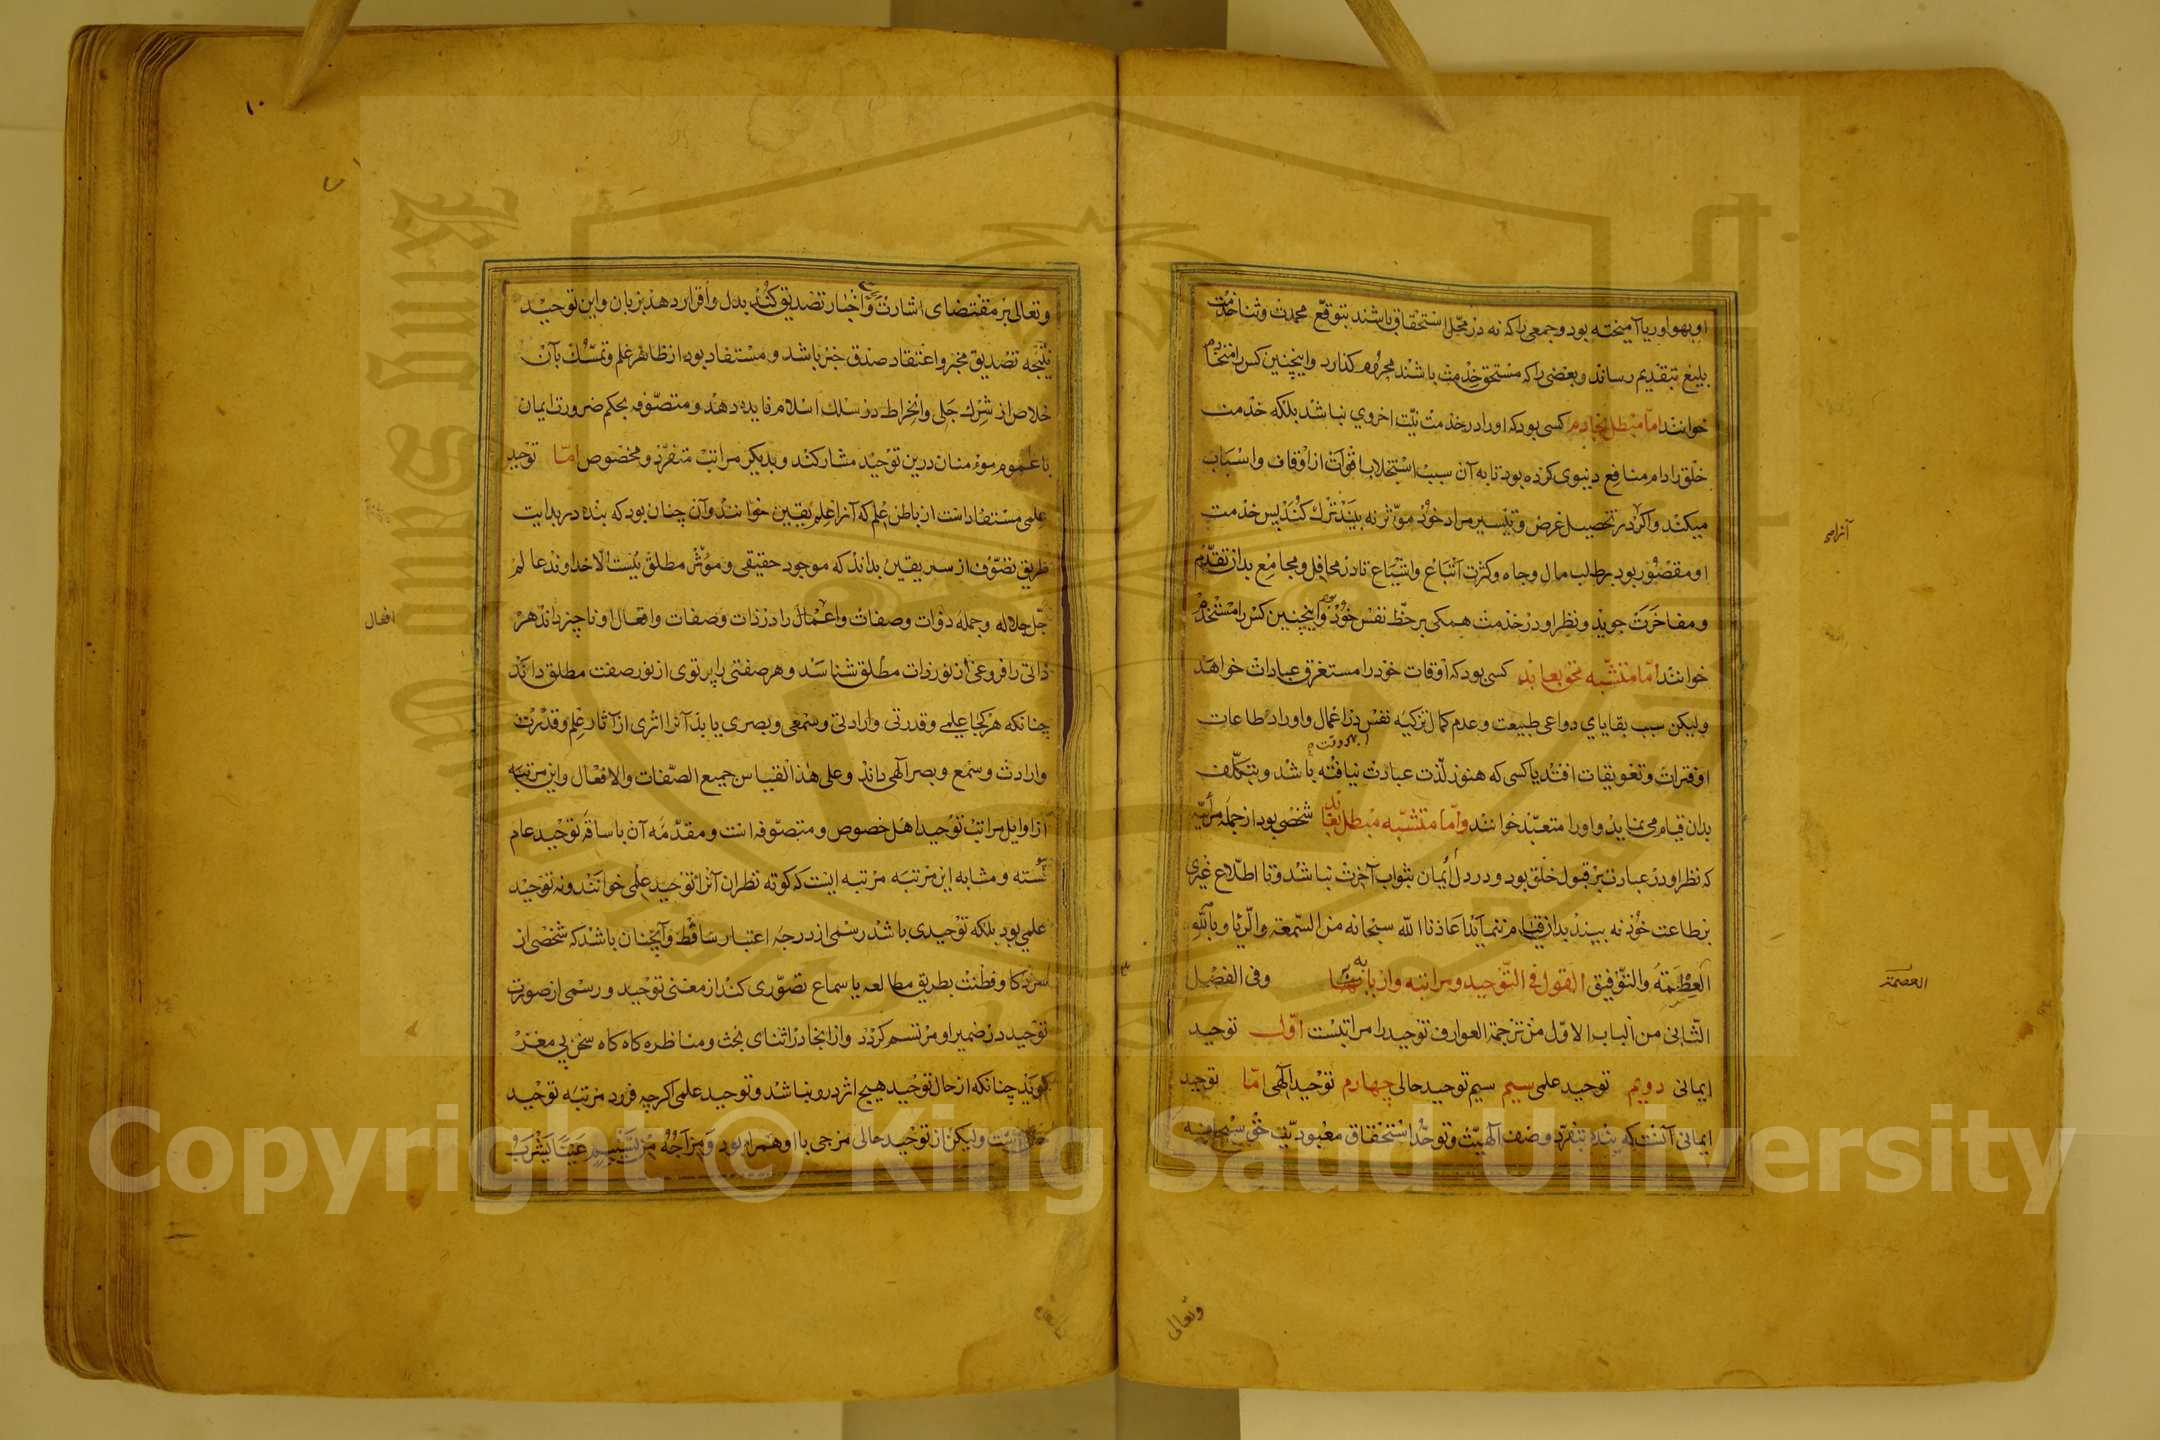 او بهوا و ریا آمیخته بود و جمعی را که نه در محل استحقاق باشند بتوقع محمدت و ثنا خدمت
بلیغ بتقدیم رساند و بعضی را که مستحق خدمت باشند محروم گذارد و اینچنین کس را متخادم
خوانند اما مبطل بخادم کسی بود که او را در خدمت نیت اخروی نباشد بلکه خدمت
خلق را دام منافع دینوی کرده بود تا به آن سبب استجلاب اقوات از اوقاف و اسباب
میکند و اکر در تحصیل غرض و تیسیر مراد خود موثر نه بیند ترک کند پس خدمت
او مقصور بود بر طلب مال و جاه و کثرت اتباع و اشیاع تا در محافل و مجامع بدان تقدم
و مفاخرت جوید و نظر او در خدمت همکی بر حظ نفس خود بود و اینچنین کس را مستخدم
خوانند اما متشبه محق بعابد کسی بود که اوقات خود را مستغرق عبادات خواهد
ولیکن سبب بقایای دواعی طبیعت و عدم کمال تزکیه نفس در اعمال و اوراد و طاعات
او فترات و تعویقات افتد یا کسی که هنوز لذت عبادت نیافته باشد و بتکلف
بدان قیام می نماید و او را متعبد خوانند و اما متشبه مبطل بعابد شخصی بود از جمله مرائیه
که نظر او در عبادت بر قبول خلق بود و در دل ایمان بثواب آخرت نباشد و تا اطلاع غیری
بر طاعت خود نه بیند بدان قیام ننماید اعاذنا الله سبحانه من السمعه والریا وبالله
العظمة والتوفیق القول فی التوحید ومراتبه واربابها وفی الفصل
الثانی من الباب الاول من ترجمة العوارف توحید را مراتبست اول توحید
ایمانی دویم توحید علمی سیم سیم توحید حالی چهارم توحید الهی اما توحید
ایمانی آنست که بنده بتفرد وصف الهیت و توحد استحقاق معبودیت حق سبحانه
آنرا صح
العصمة
وتعالی
۱۰
و تعالی بر مقتضای اشارت و اخبار تصدیق کند بدل و اقرار دهد بزبان و این توحید
نتیجه تصدیق مخبر و اعتقاد صدق خبر باشد و مستفاد بود از ظاهر علم و تمسک بآن
خلاص از شرک جلی و انخراط در سلک اسلام فایده دهد و متصوفه بحکم ضرورت ایمان
با عموم مومنان درین توحید مشارکند و بدیکر مراتب متفرد و مخصوص اما توحید
علمی مستفاد است از باطن علم که آنرا علم یقین خوانند و آن چنان بود که بنده در بدایت
طریق تصوف از سر یقین بداند که موجود حقیقی و موثر مطلق نیست الا خداوند عالم
جل جلاله و جمله ذوات و صفات و اعمال را در ذات و صفات و افعال او ناچیز داند هر
ذاتی را فروغی از نور ذات مطلق شناسد و هر صفتی را پرتوی از نور صفت مطلق داند
چنانکه هر کجا علمی و قدرتی و ارادتی و سمعی و بصری یابد آنرا اثری از آثار علم و قدرت
و ارادت و سمع و بصر الهی داند و علی هذا القیاس جمیع الصفات والافعال و این مرتبه
از اوایل مراتب توحید اهل خصوص و متصوفه است و مقدمه آن با ساقه توحید عام
پیوسته و مشابه این مرتبه مرتبه ایست که کوته نظران آنرا توحید علمی خوانند و نه توحید
علمی بود بلکه توحیدی باشد رسمی از درجه اعتبار ساقط و آنچنان باشد که شخصی از
سر ذکا و فطنت بطریق مطالعه یا سماع تصوری کند از معنی توحید و رسمی از صورت
توحید در ضمیر او مرتسم کردد و از انجا در اثنای بحث و مناظره کاه کاه سخن بی مغز
کوید چنانکه از حال توحید هیچ اثر درو نباشد و توحید علمی اکرچه فرود مرتبه توحید
حالی است ولیکن از توحید حالی مزجی با او همراه بود و مزاجه من تسنیم عینا یشرب
افعال
Copyright © King Saud University